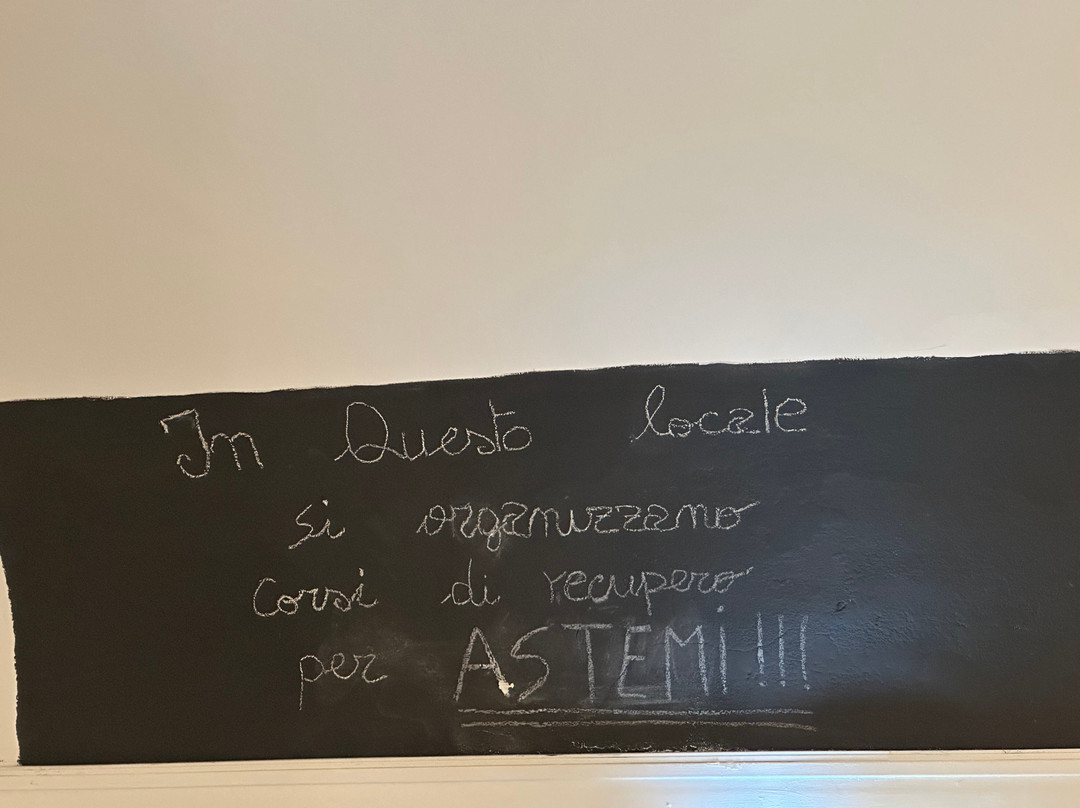 In Questo locale
si organizzano
corsi di recupero
per ASTEMI!!!